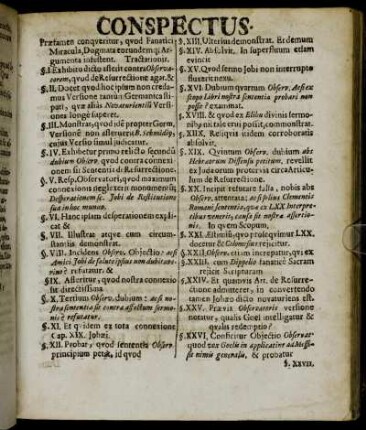 CONSPECTUS.
Præfamen conqueritur, quod Fanatici
Miracula, Dogmata eorundem q; Ar-
gumenta infestent. Tractationis.
§. I. Exhibito dicto asserit contra Observa-
torem, quod de Resurrectione agat. &
§. II. Docet quod hoc ipsum non creda-
mus Versione tantum Germanica sti-
pati, quæ aliàs Novaturientis Versi-
onea longè superet.
§. III. Monstrat, quod idē propter Germ.
Versionē non asseruerit B. Schmidig,
cujus Versio simul adducitur.
§. IV. Exhibetur primo relicto secundū
dubium Observ. quod contra connexi-
onem sit Sententia de Resurrectione.
§. V. Resp. Observatori, quod maximum
connexionis neglexerit monumentū
Desperationem sc. Jobi de Restitutione
sua in hoc mundo.
§. VI. Hanc ipsam desperationem expli-
cat &
§. VII. Illustrat atque eum circum-
stantiis demonstrat.
§. VIII. Incidens Observ. Objectio: ac si
Amici Jobi de salute ipsius non dubitave-
rint? refutatur. &
§. IX. Asseritur, quod nostra connexio
sit directissima.
§. X. Tertium Observ. dubium: ac si
nostra sententia sit contra affectum sermo-
nis? refutatur.
§. XI. Et quidem ex tota connexione
Cap. XIX. Jobæi.
§. XII. Probat, quod sententia Observ.
principium petat, id quod
§. XIII. Ulterius demonstrat. Et demum
§. XIV. Absolvit. In superfluum etiam
evincit
§. XV. Quod sermo Jobi non interruptè
fluxerit nexu.
§. XVI. Dubium quartum Observ. ac si ex
scopo Libri nostra sententia probari non
posset? examinat.
§. XVIII. & quod ex Elihu divino sermo-
ne, &
§. XIIX. Reliquis eidem corroboratis
absolvit.
§. XIX. Quintum Observ. dubium ab
Hebræorum Dissensu petitum, revellit
ex Judæorum proterviæ circa Articu-
lum de Resurrectione.
§. XX. Incipit refutare falsa, nobis ab
Observ. attentata; ac si plebis Clementis
Romani sententia, quæ ex LXX Interpre-
tibus venerit, causa sit nostræ assertio-
nis. In quem Scopum,
§. XXI. Æstimat, quo proloquimur LXX.
docetur & Colomesius rejicitur.
§. XXII. Observ. etiam increpatur, qui ex
§. XXIII. cum Dippelio fanaticè Sacram
rejicit Scripturam
§. XXIV. Et quamvis Art. de Resurre-
ctione admitteret, in convertendo
tamen Jobæo dicto novaturiens est.
§. XXV. Prævia Observatoris versione
notitur, qualis Goel intelligatur &
qualis redemptio?
§. XXVI. Constituitur Objectio Observat-
quod vox Goelis in applicatione ad Messi-
ã sit nimis generalis, & probatur
§. XXVII.